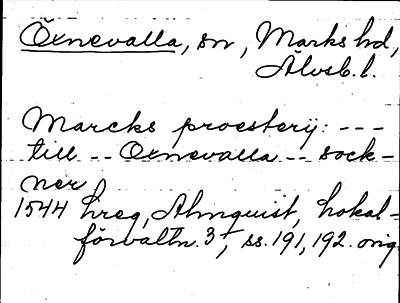 Öxnevalla, sn, Marks hd,
Älvsb. l.
Marcks proesterij: ---
till -- Oxnevalla -- sock-
ner
1544 hreg, Almquist, Lokal-
förvaltn. 3, ss. 191, 192. orig.